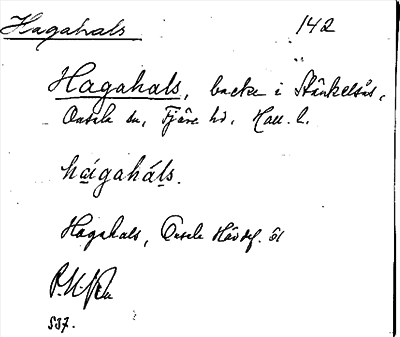 Hagahals 142
Hagahals, backe i Stänkelsås,
Onsala sn, Fjäre hd, Hall. l.
hágaháls.
Hagahals, Onsala Hävdef. 51
537.